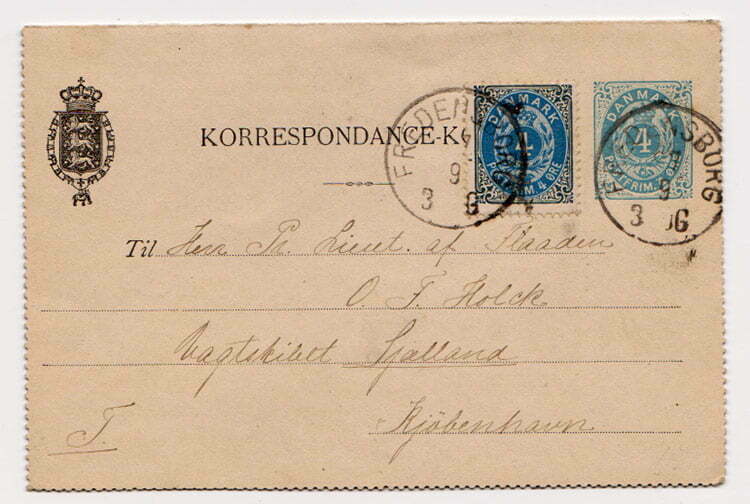 KORRESPONDANCE-K
DANMARK
4
POSTFRIM. 4 ØRE
DANMARK
4
POSTFRIM. ØRE
FREDENSBORG
9
3 G
NSBORG
9
3 G
Til Herr Pr. Lieut. af Flaaden
O. F. Holck
Vagtskibet Sjælland
Kjøbenhavn
T.